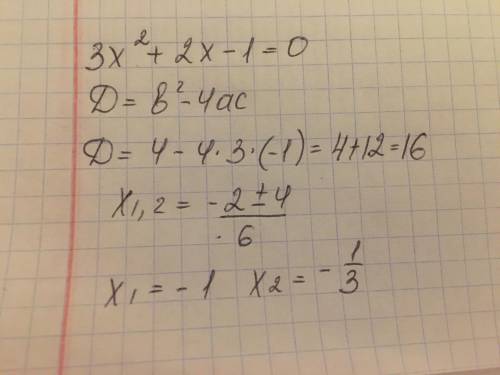 3x² + 2x - 1 = 0
D = b² - 4ac
D = 4 - 4·3·(-1) = 4+12=16
x₁,₂ = (-2 ± 4)/6
x₁ = -1 x₂ = -1/3